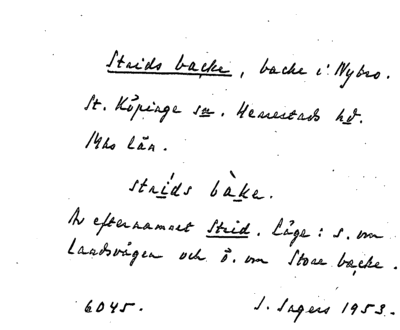 Strids backe, backe i Nybro.
St. Köpinge sn. Herrestads hd.
Mho län.
strids bàke.
Av efternamnet Strid. Läge: s. om
landsvägen och ö. om Store backe.
6045. I. Ingers 1953.